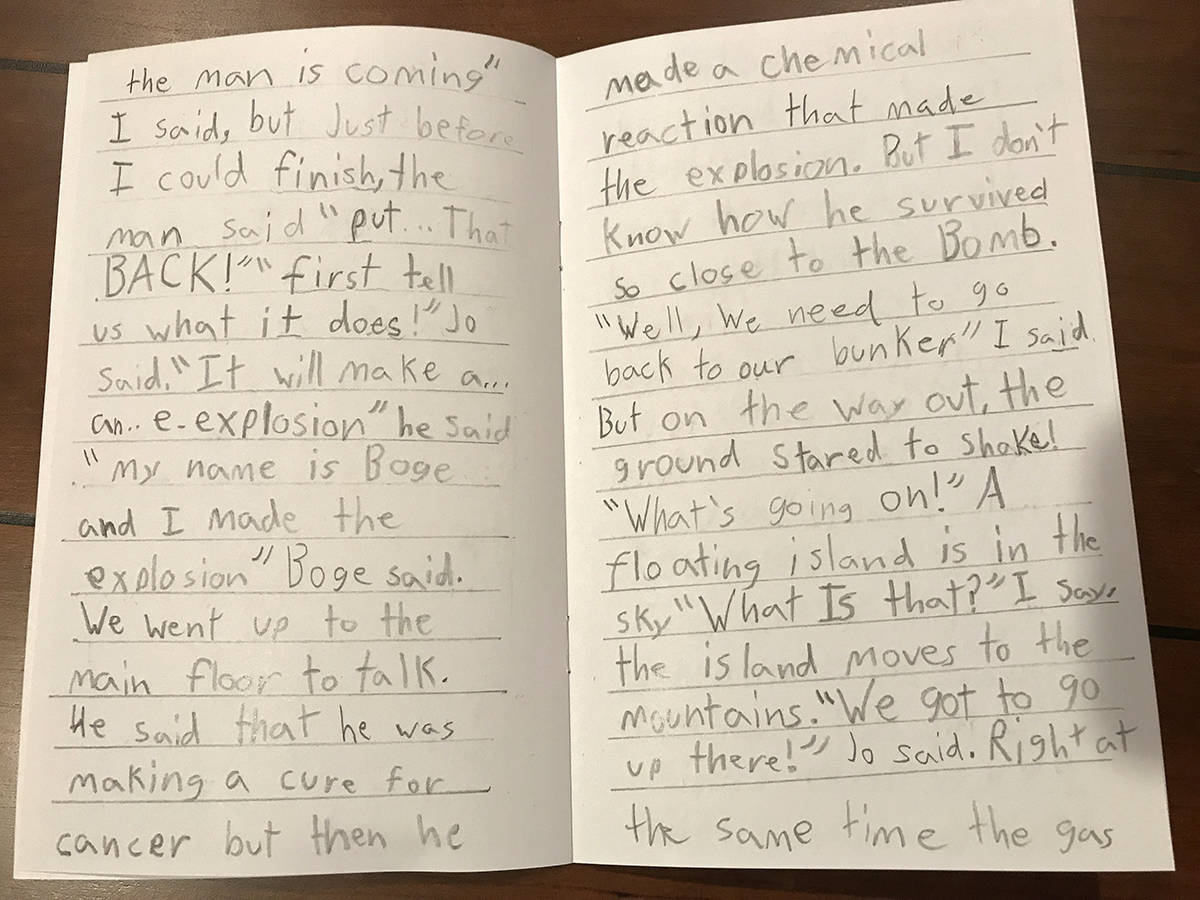 the man is coming"
I said, but Just before
I could finish, the
man said "put... That
BACK!" "first tell
us what it does!" Jo
said. "It will make a...
an.. e-explosion" he said
"my name is Boge
and I made the
explosion" Boge said.
We went up to the
main floor to talk.
He said that he was
making a cure for
cancer but then he
made a chemical
reaction that made
the explosion. But I don't
Know how he survived
so close to the Bomb.
"Well, We need to go
back to our bunker" I said.
But on the way out, the
ground stared to shake!
"What's going on!" A
floating island is in the
sky "What Is that?" I say.
the island moves to the
mountains. "We got to go
up there!" Jo said. Right at
the same time the gas